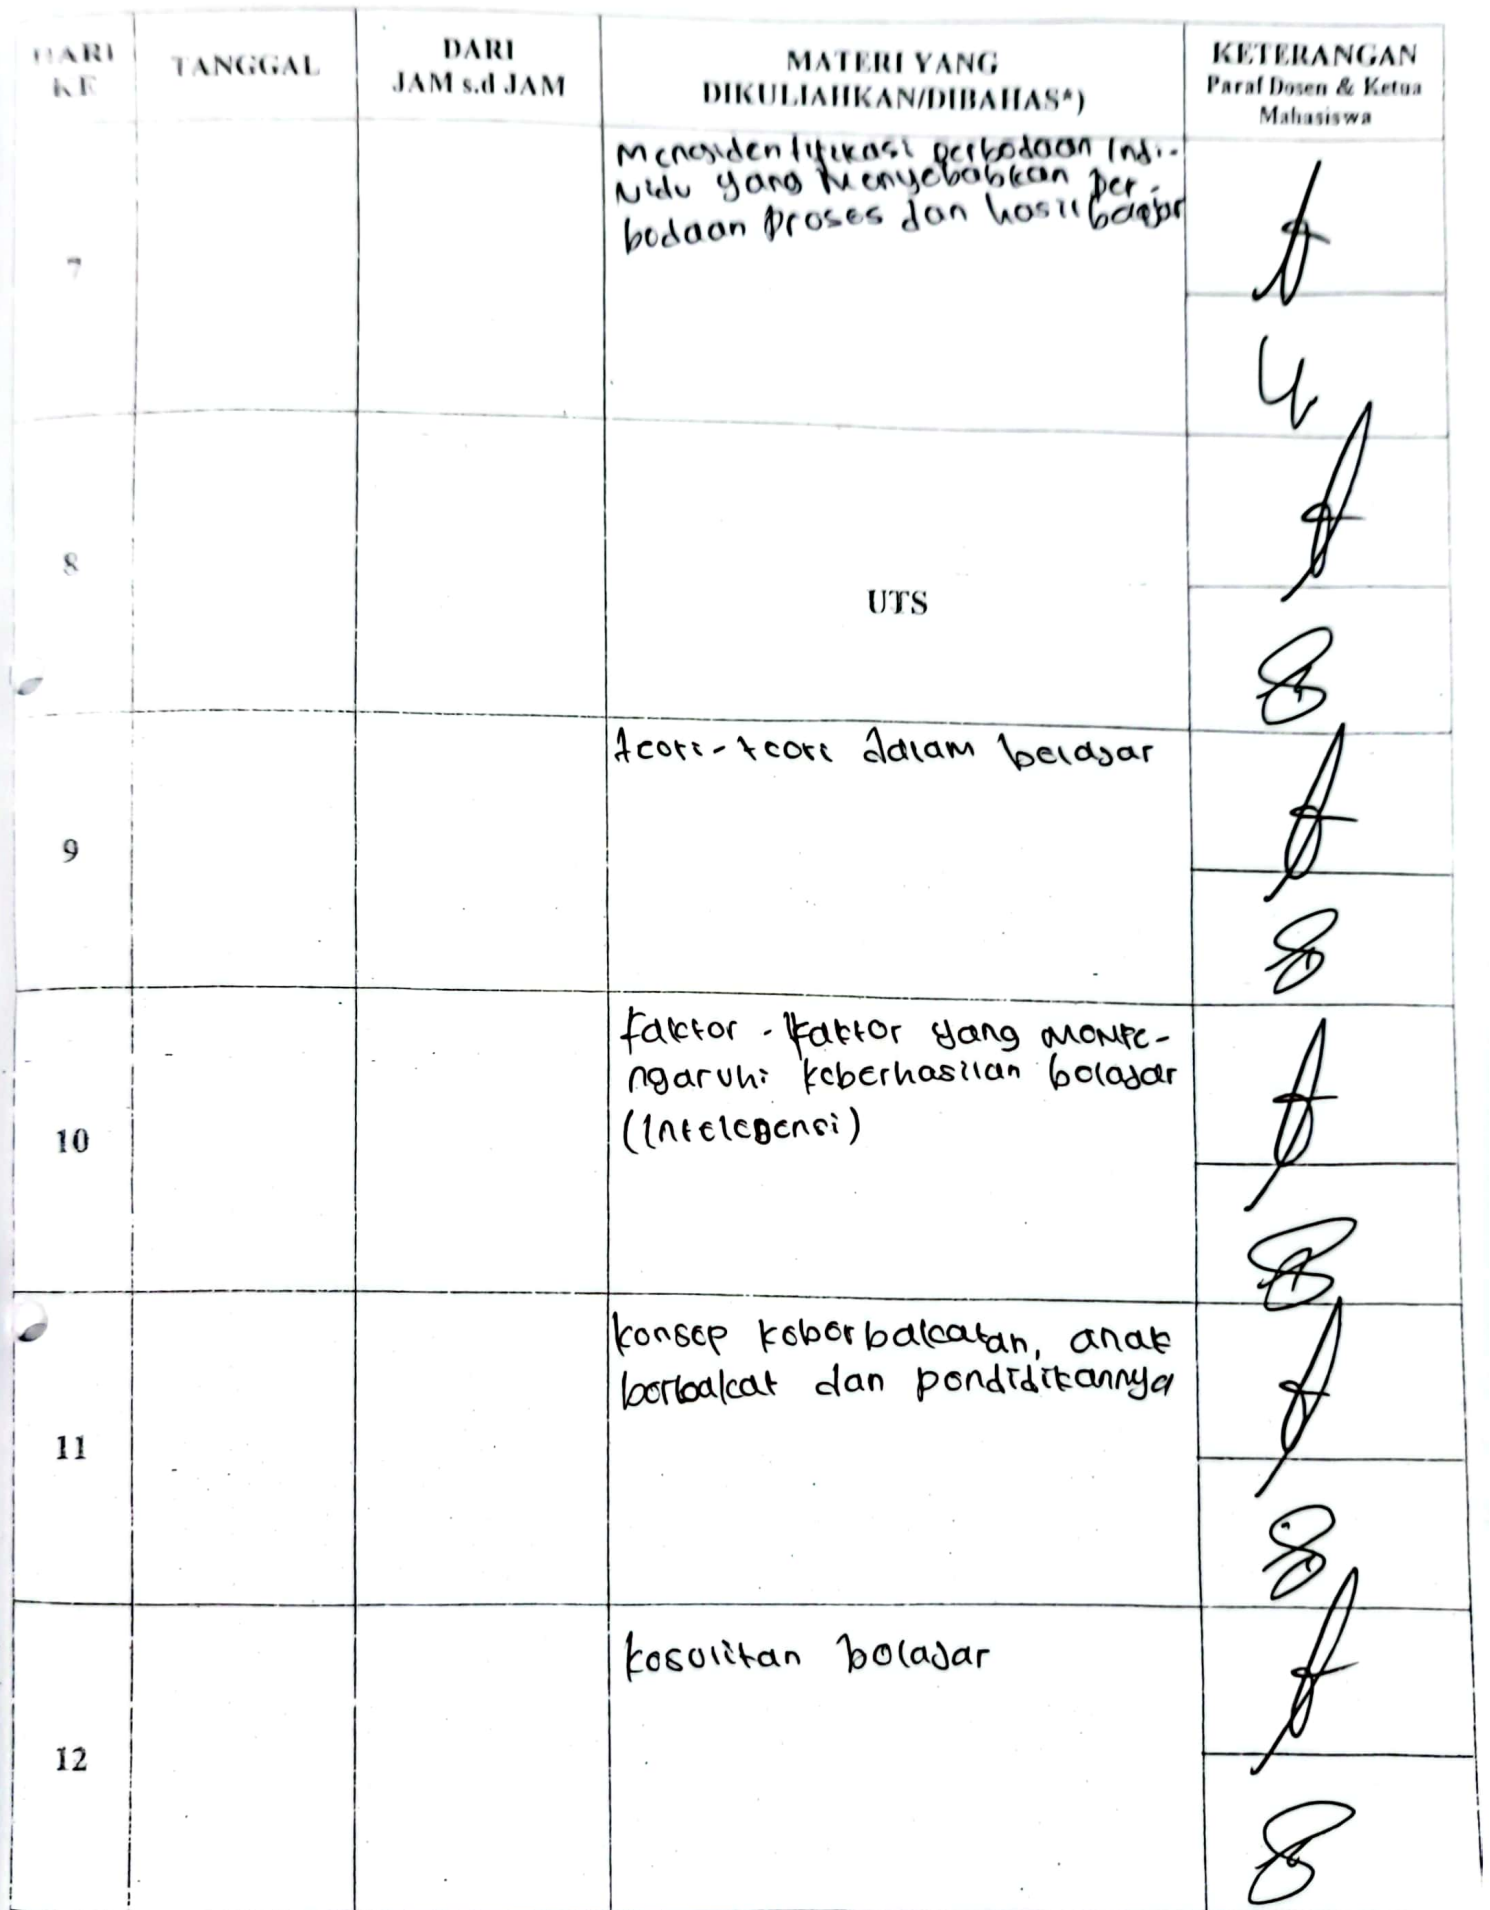 HARI
KE
TANGGAL
DARI
JAM s.d JAM
MATERI YANG
DIKULIAHKAN/DIBAHAS*)
KETERANGAN
Paraf Dosen & Ketua
Mahasiswa
7
Mengidentifikasi perbedaan Indi-
vidu yang Menyebabkan per-
bedaan proses dan hasil belajar
8
UTS
9
teori-teori dalam belajar
10
faktor - faktor yang mempe-
ngaruhi keberhasilan belajar
(Intelegensi)
11
konsep keberbakatan, anak
berbakat dan pendidikannya
12
kesulitan belajar